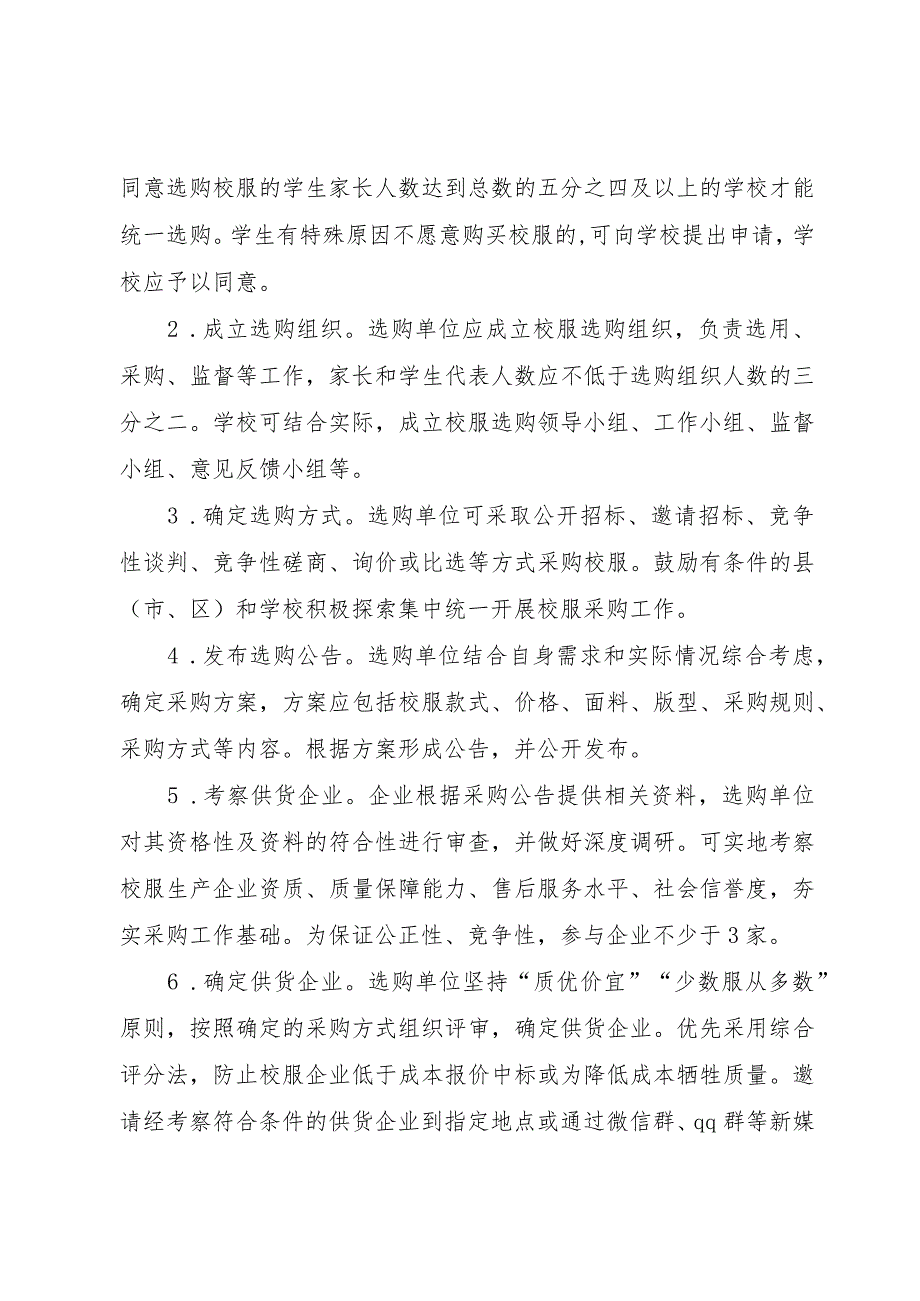 同意选购校服的学生家长人数达到总数的五分之四及以上的学校才能
统一选购。学生有特殊原因不愿意购买校服的,可向学校提出申请，学
校应予以同意。
2 .成立选购组织。选购单位应成立校服选购组织，负责选用、
采购、监督等工作，家长和学生代表人数应不低于选购组织人数的三
分之二。学校可结合实际，成立校服选购领导小组、工作小组、监督
小组、意见反馈小组等。
3 .确定选购方式。选购单位可采取公开招标、邀请招标、竞争
性谈判、竞争性磋商、询价或比选等方式采购校服。鼓励有条件的县
（市、区）和学校积极探索集中统一开展校服采购工作。
4 .发布选购公告。选购单位结合自身需求和实际情况综合考虑，
确定采购方案，方案应包括校服款式、价格、面料、版型、采购规则、
采购方式等内容。根据方案形成公告，并公开发布。
5 .考察供货企业。企业根据采购公告提供相关资料，选购单位
对其资格性及资料的符合性进行审查，并做好深度调研。可实地考察
校服生产企业资质、质量保障能力、售后服务水平、社会信誉度，夯
实采购工作基础。为保证公正性、竞争性，参与企业不少于3家。
6 .确定供货企业。选购单位坚持“质优价宜”“少数服从多数”
原则，按照确定的采购方式组织评审，确定供货企业。优先采用综合
评分法，防止校服企业低于成本报价中标或为降低成本牺牲质量。邀
请经考察符合条件的供货企业到指定地点或通过微信群、qq群等新媒